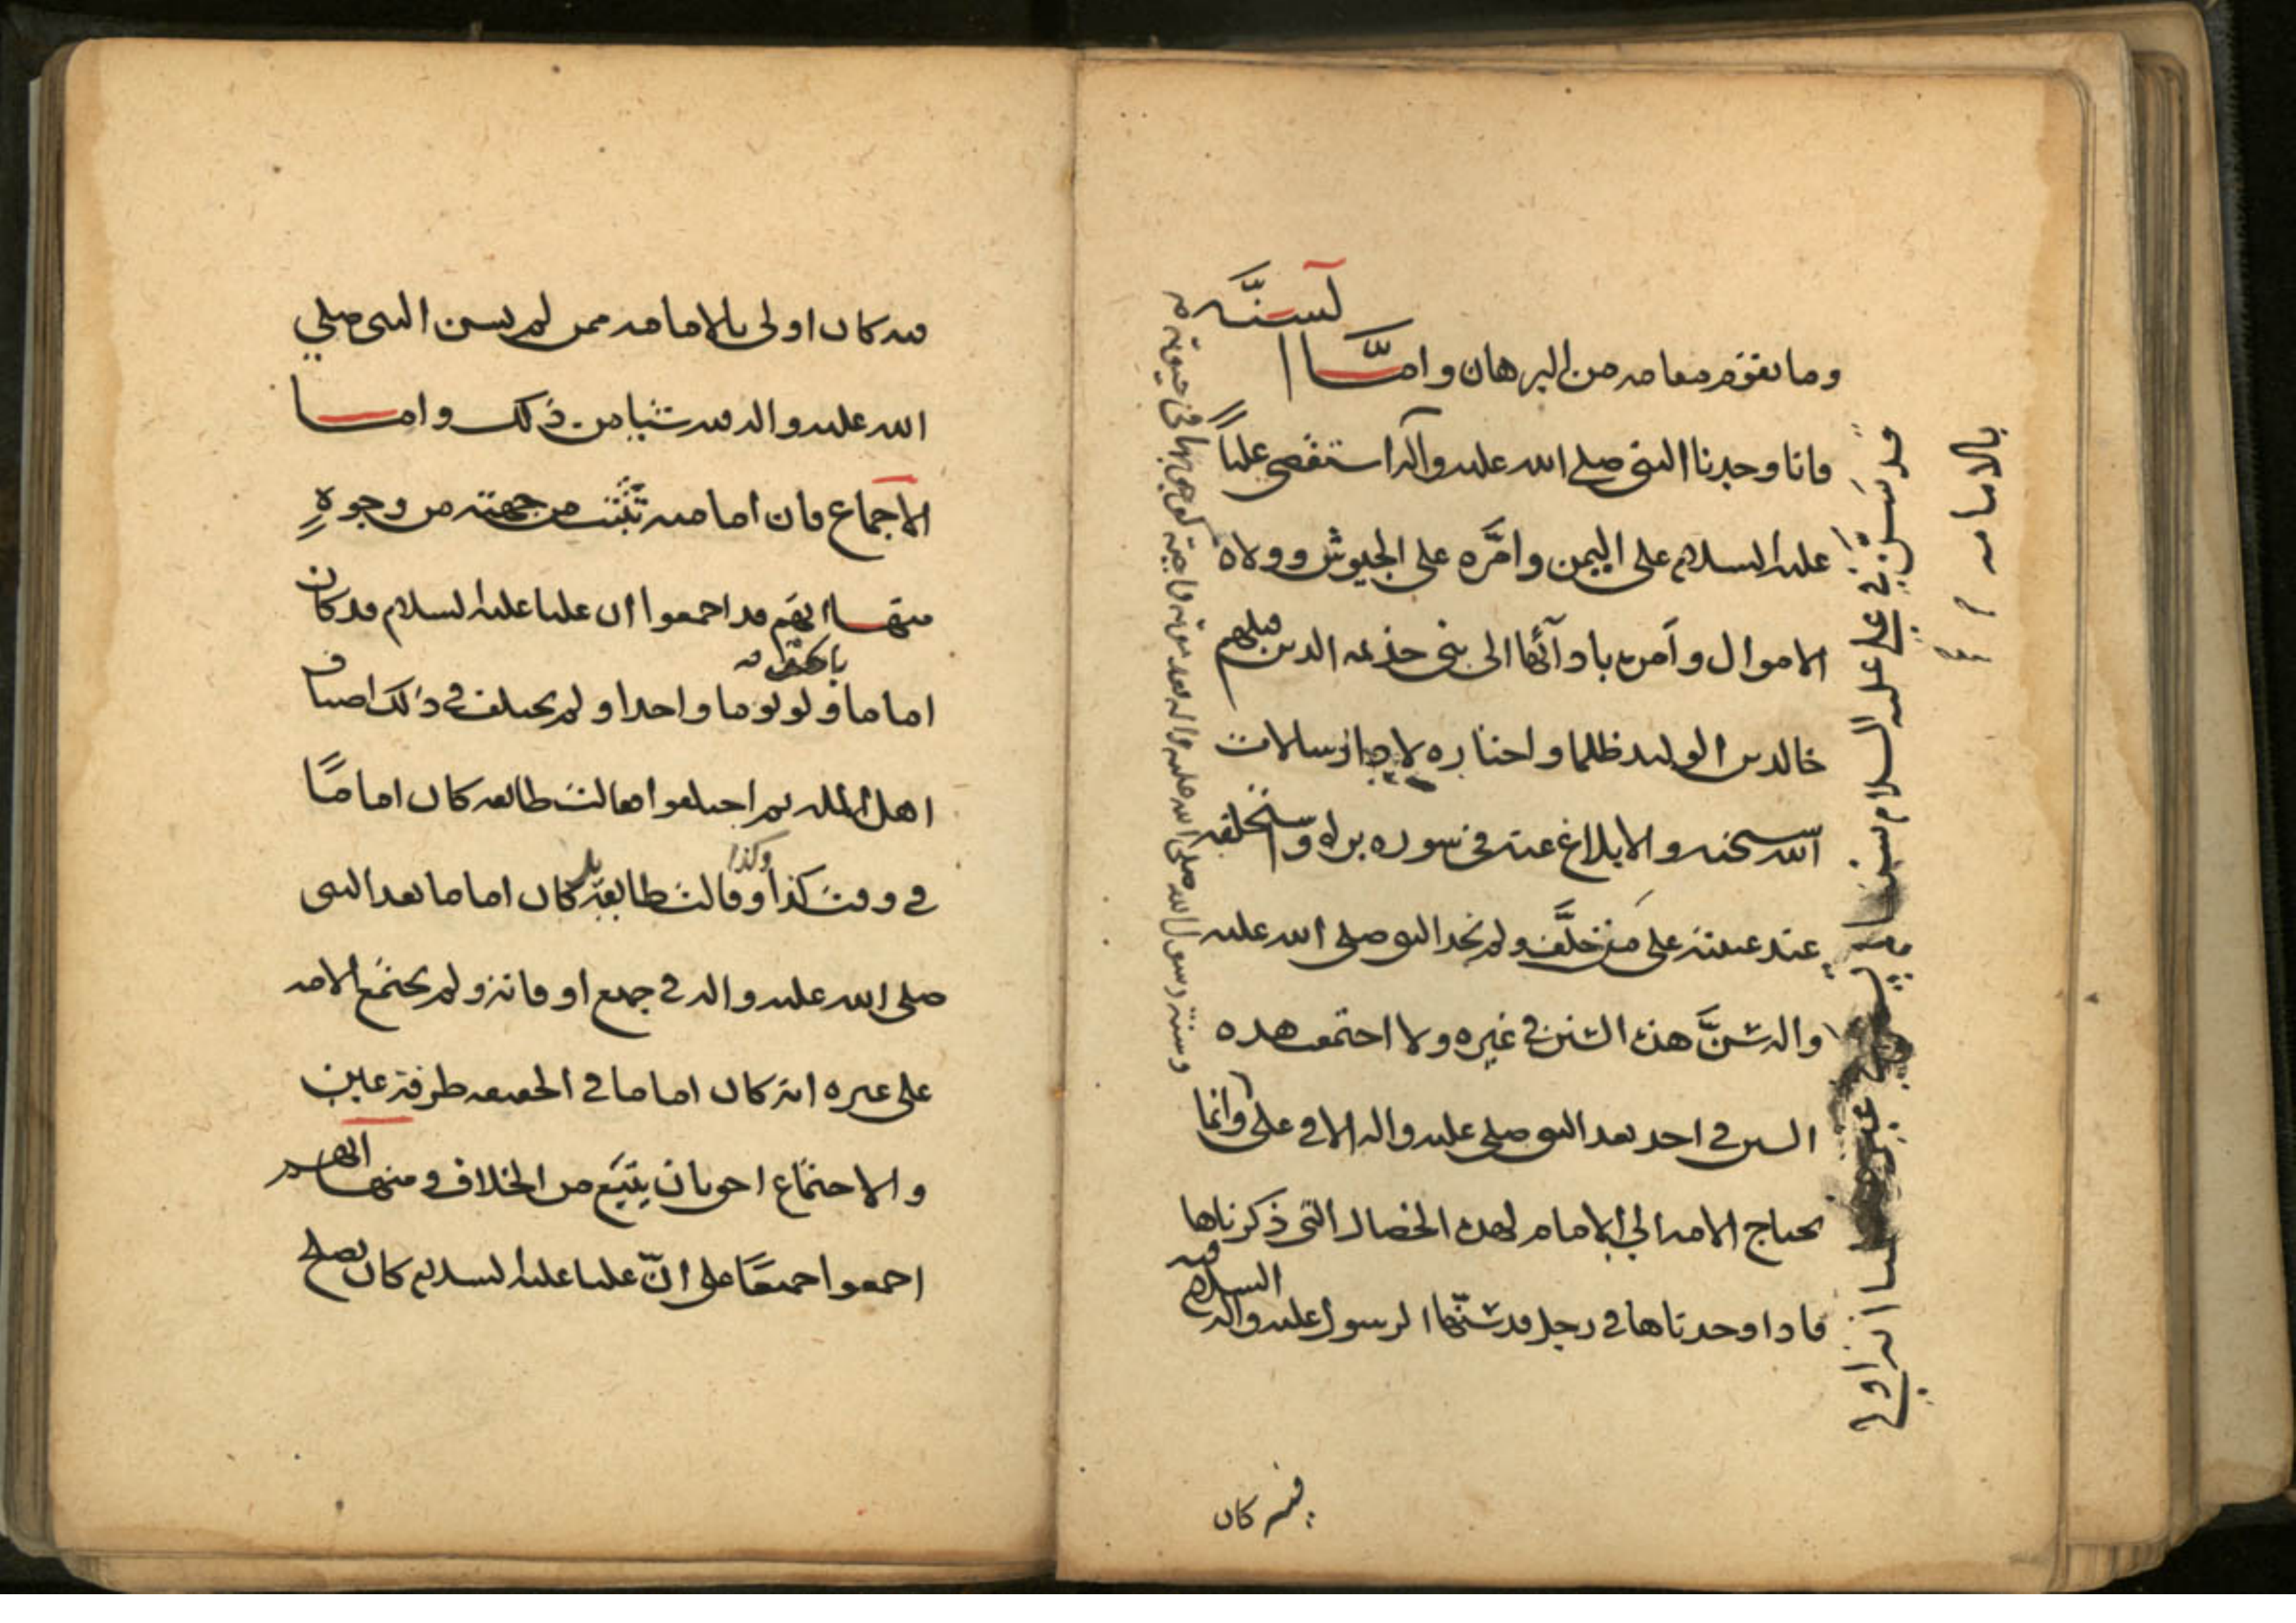 وما يقوم مقامه من البرهان واما ا
لسنة
فانا وجدنا النبي صلى الله عليه وآله استقضى علياً
عليه السلام على اليمن وامَّره على الجيوش وولاه
الاموال وأمره بادآئها الى بني جذيمه الذين قتلهم
خالد بن الوليد ظلما واختاره لاجل رسالات
الله سبحنه والابلاغ عنه في سوره براه واستخلفه
عند غيبته على من خلَّف ولم نجد النبي صلى الله عليه
واله سنَّ هذه السنن في غيره ولا اجتمعت هذه
السنن في احد بعد النبي صلى عليه واله الا في علي وانما
تحتاج الامه الى الامام لهذه الخصال التي ذكرناها
فاذا وجدناها في رجل قد سنّها الرسول عليه واله السلام
فيه
فيه كان
وسنة رسول الله صلى الله عليه واله بعد موته واجبة كوجوبها في حيوته
قد سَنّ في علي عليه السلام سننا
انه اولى
بالامامه
فيه كان اولى بالامامه ممن لم يسن النبي صلى
الله عليه واله فيه شيا من ذلك واما
الاجماع فان امامته تثبت من جهته من وجوهٍ
منها انهم قد اجمعوا ان عليا عليه السلام قد كان
اماما ولو يوما واحدا ولم يختلف في ذلك اصناف
اهل المله ثم اختلفوا فقالت طائفه كان اماما
في وقت كذا وكذا وقالت طايفة بل كان اماما بعد النبي
صلى الله عليه واله في جميع اوقاته ولم يجتمع الامه
على غيره انه كان اماما في الحقيقه طرفة عين
والاجتماع احق بان يتبع من الخلاف ومنها انهم
اجمعوا جميعًا على انّ عليا عليه السلام كان يصلح